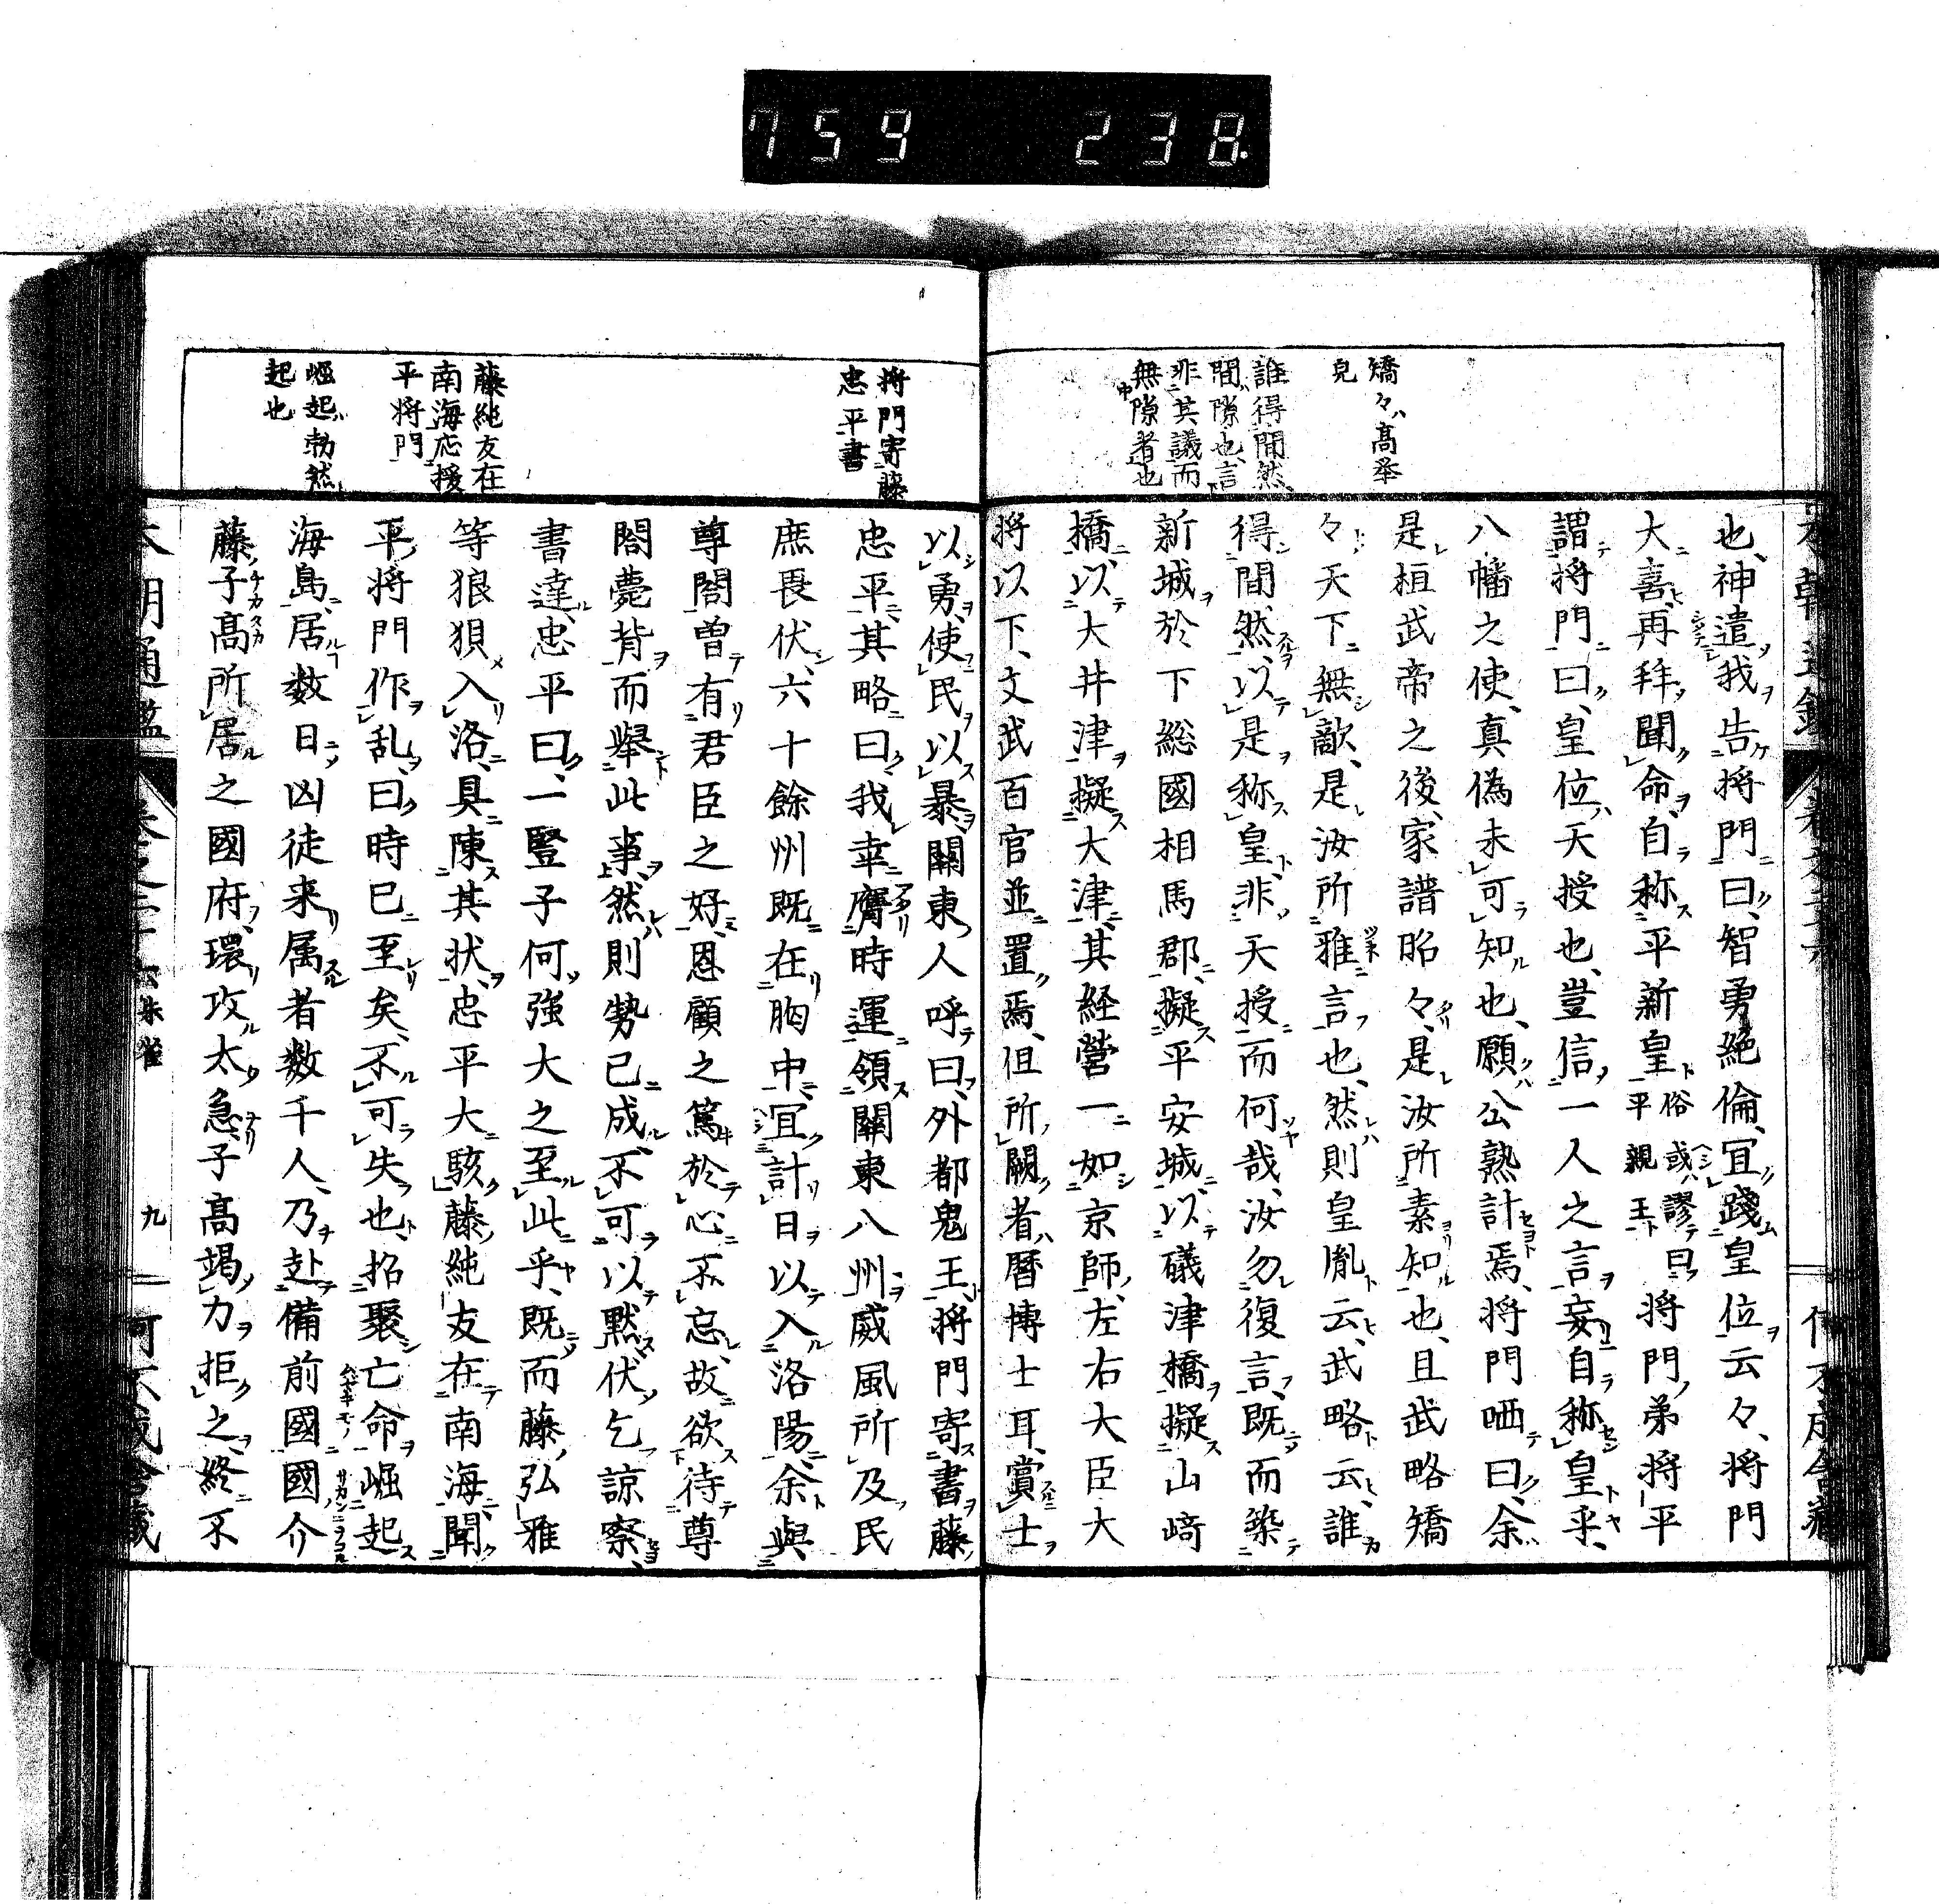 759 238
矯々ハ高举
皃
誰得間然、
間隙也、言
非其議而
無隙者也
也、神遣我告将門曰、智勇絶倫、宜踐皇位云々、将門
大喜、再拜聞命、自称平新皇俗或謬曰平親王将門弟将平
謂将門曰、皇位天授也、豈信一人之言妄自称皇乎、
八幡之使、真偽未可知也、願公熟計焉、将門哂曰、余
是桓武帝之後、家譜昭々、是汝所素知也、且武略矯
々天下無敵、是汝所雅言也、然則皇胤云、武略云、誰
得間然、以是称皇、非天授而何哉、汝勿復言、既而築
新城於下総國相馬郡、擬平安城、以礒津橋擬山﨑
橋、以大井津擬大津、其経營一如京師、左右大臣大
将以下、文武百官並置焉、但所闕者、暦博士耳、賞士
将門寄藤
忠平書
藤純友在
南海応援
平将門
崛起勃然
起也
以勇、使民以暴、關東人呼曰、外都鬼王、将門寄書藤
忠平、其略曰、我幸膺時運、領關東八州、威風所及、民
庶畏伏、六十餘州既在胸中、宜計日以入洛陽、余與
尊閤曽有君臣之好、恩顧之篤於心不忘、故欲待尊
閤薨背而舉此事、然則勢已成、不可以黙伏、乞諒察、
書達、忠平曰、一豎子何強大之至此乎、既而藤弘雅
等狼狽入洛、具陳其状、忠平大駭、藤純友在南海、聞
平将門作乱、曰時已至矣、不可失也、招聚亡命崛起
海島、居数日、凶徒来属者数千人、乃赴備前國、國介
藤子髙所居之國府、環攻太急、子髙竭力拒之、終不
朱雀
九